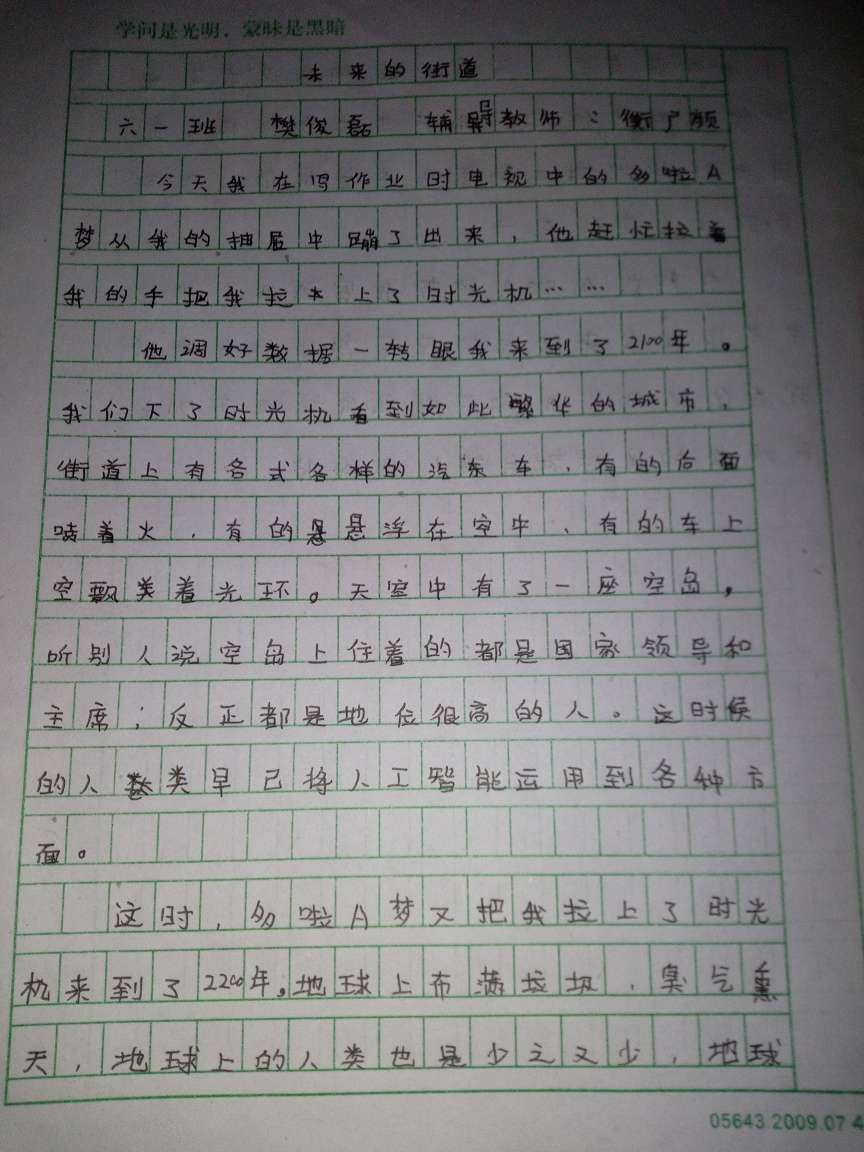 学问是光明，蒙昧是黑暗
未来的街道
六一班 樊俊磊 辅导教师：衡广颜
今天我在写作业时电视中的多啦A
梦从我的抽屉中蹦了出来，他赶忙拉着
我的手把我拉上了时光机……
他调好数据一转眼我来到了2100年。
我们下了时光机看到如此繁华的城市，
街道上有各式各样的汽车车，有的后面
喷着火，有的悬浮在空中，有的车上
空飘类着光环。天空中有了一座空岛，
听别人说空岛上住着的都是国家领导和
主席；反正都是地位很高的人。这时候
的人类早已将人工智能运用到各种方
面。
这时，多啦A梦又把我拉上了时光
机来到了2200年。地球上布满垃圾，臭气熏
天，地球上的人类也是少之又少，地球
05643 2009.07 4